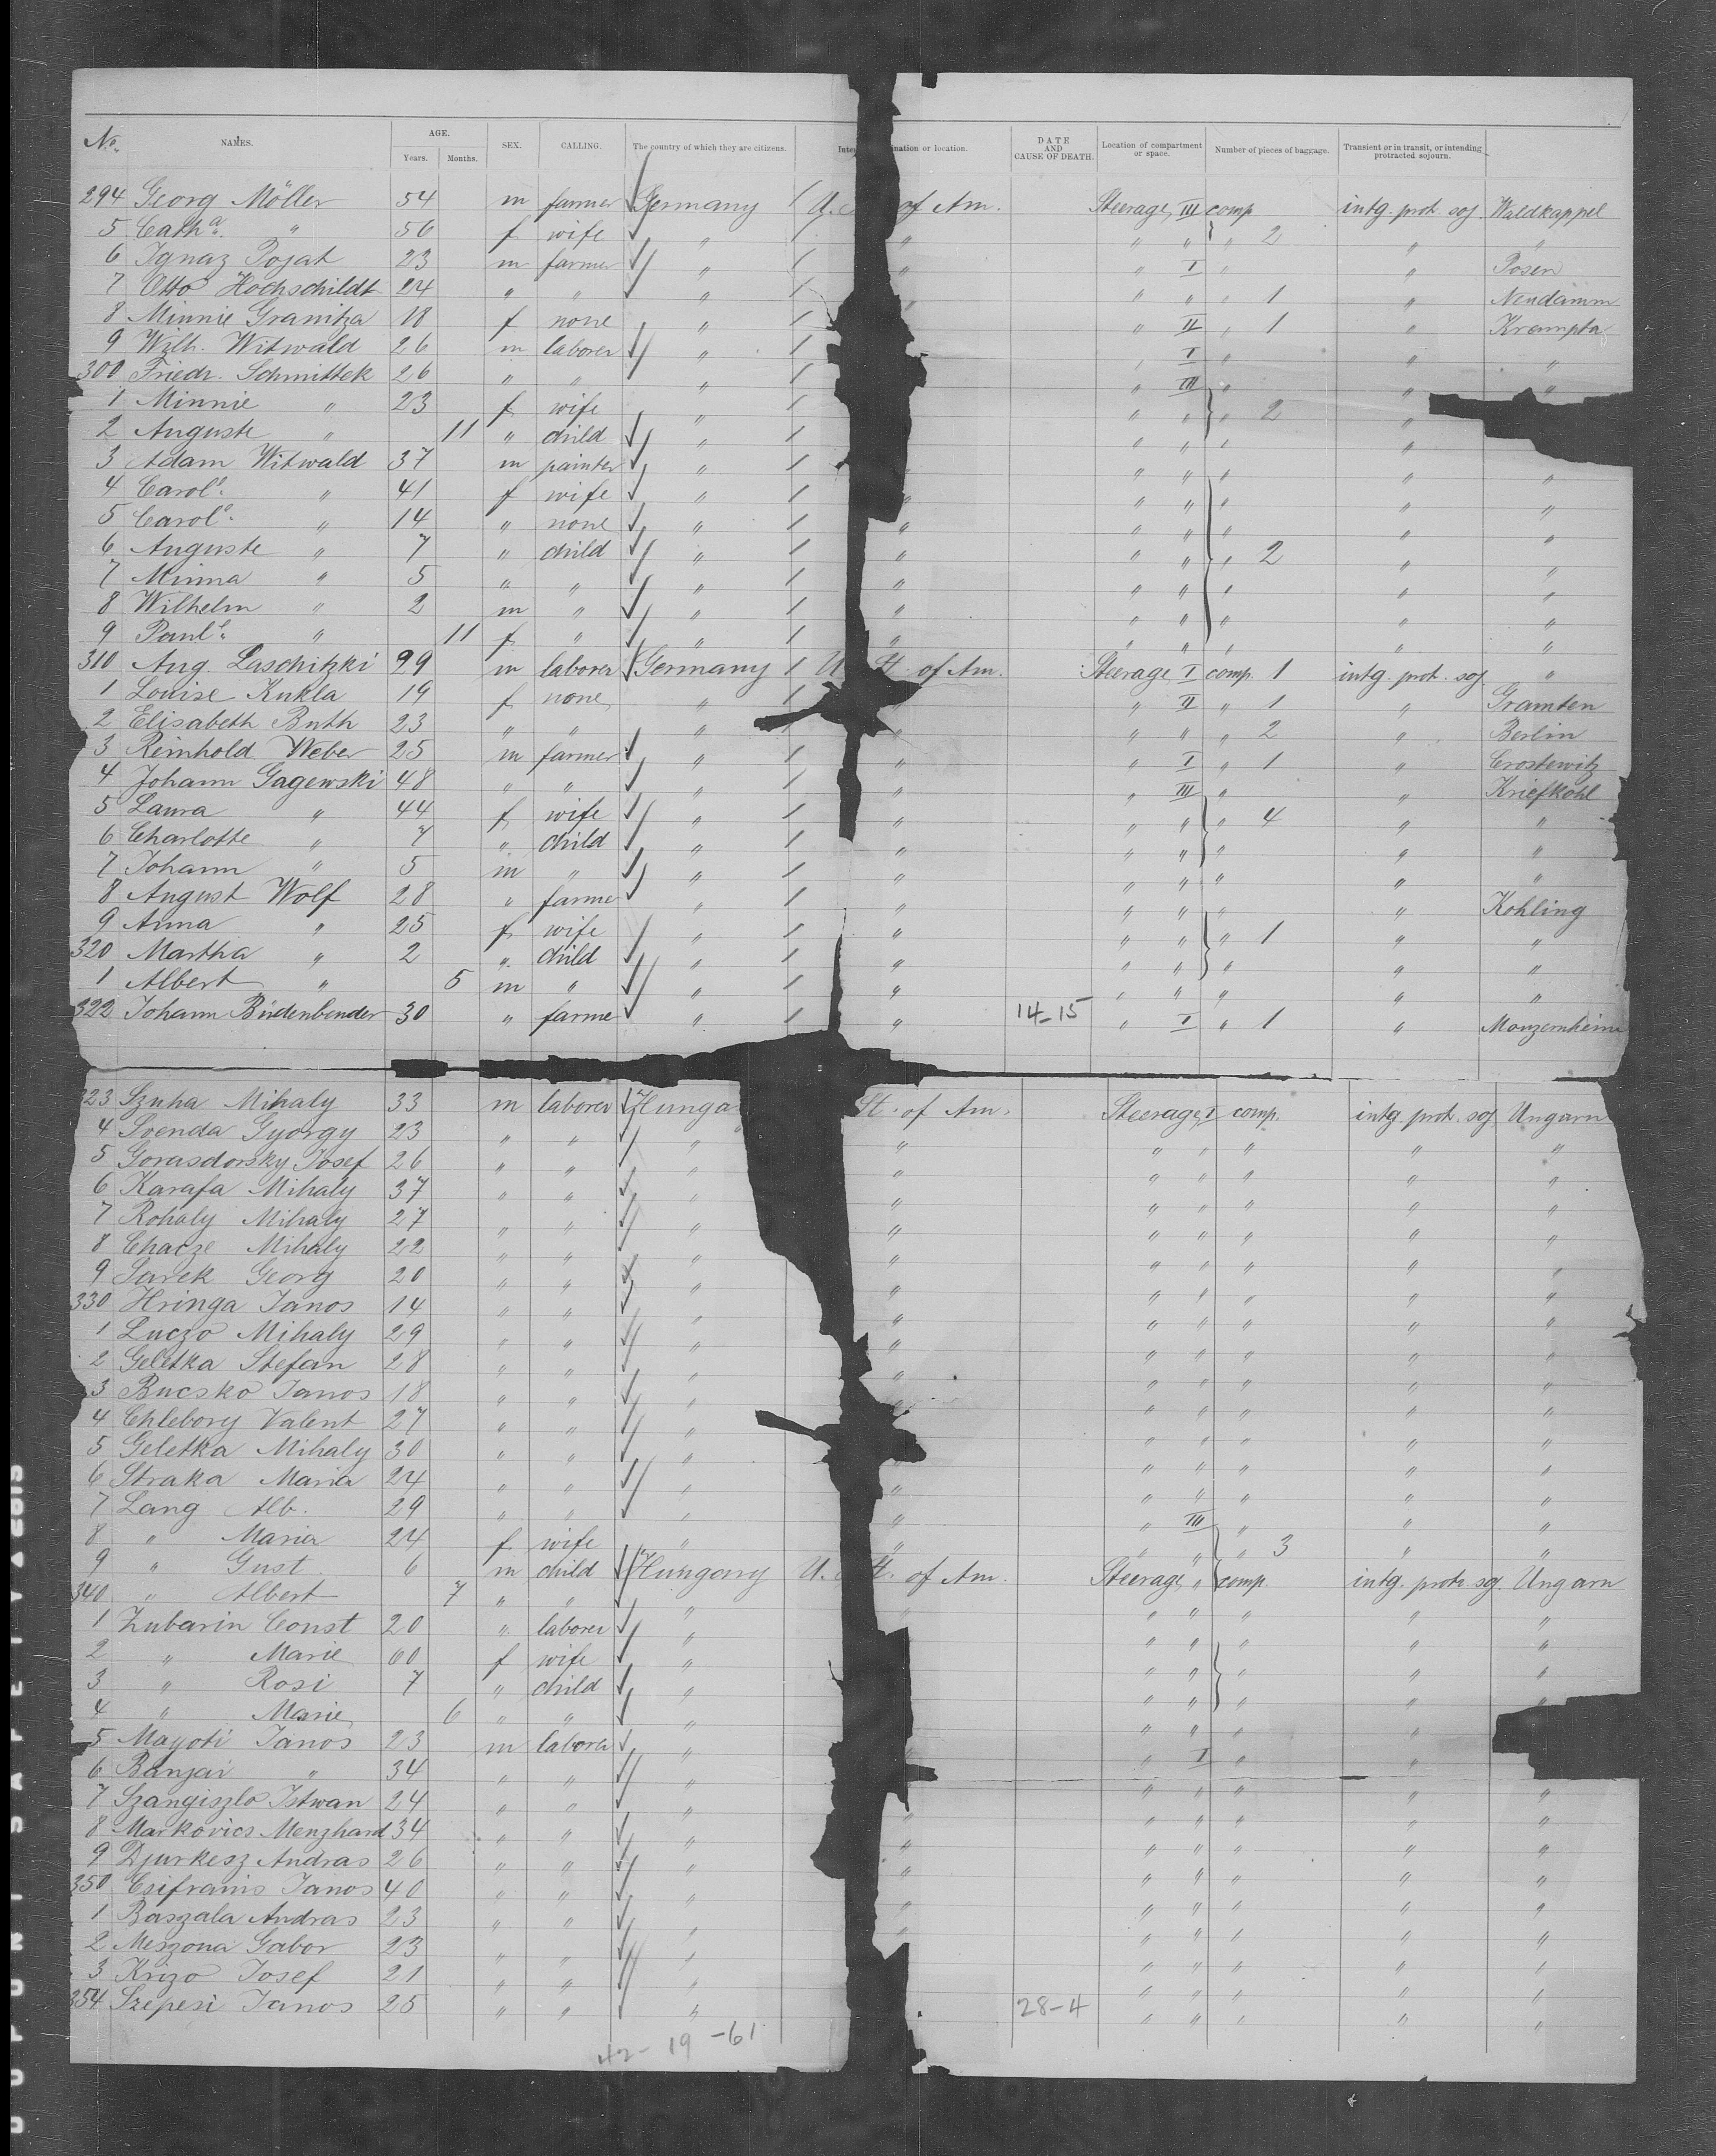 No. NAMES. AGE. Years. Months. SEX. CALLING. The country of which they are citizens. ination or location. DATE AND CAUSE OF DEATH. Location of compartment or space. Number of pieces of baggage. Transient or in transit, or intending protracted sojourn.
294 Georg Möller 54 m farmer Germany U. of Am. Steerage III comp intg. prot. soj. Waldkappel
5 Cath.a " 56 f wife " " " " " 2 " "
6 Ignaz Pojat 23 m farmer " " " I " " Posen
7 Otto Hochschildt 24 " " " " " " " 1 " Neudamm
8 Minnie Granitza 18 f none " " II " 1 " Krampta
9 Wilh. Witwald 26 m laborer " " I " " "
300 Friedr. Schmittek 26 " " " " III " " "
1 Minnie " 23 f wife " " " " 2 "
2 Auguste " 11 " child " " " " "
3 Adam Witwald 37 m painter " " " " " "
4 Carol.e " 41 f wife " " " " " " "
5 Carol.e " 14 " none " " " " " " "
6 Auguste " 7 " child " " " " " 2 " "
7 Minna " 5 " " " " " " " " "
8 Wilhelm " 2 m " " " " " " " "
9 Paul.e " 11 f " " " " " " " "
310 Aug. Laschitzki 99 m laborer Germany U. St. of Am. Steerage I comp. 1 intg. prot. soj. "
1 Louise Kukla 19 f none " " II " 1 " Gramten
2 Elisabeth Buth 23 " " " " " " " 2 " Berlin
3 Reinhold Weber 25 m farmer " " " I " 1 " Crostewitz
4 Johann Gagewski 48 " " " " " III " " Kriefkohl
5 Laura " 44 f wife " " " " " 4 " "
6 Charlotte " 7 " child " " " " " " "
7 Johann " 5 m " " " " " " " "
8 August Wolf 28 " farmer " " " " " " Kohling
9 Anna " 25 f wife " " " " " 1 " "
320 Martha " 2 " child " " " " " " "
1 Albert " 5 m " " " " " " " "
322 Johann Büdenbender 30 " farmer " " 14-15 " I " 1 " Monzernheim
323 Szuha Mihaly 33 m laborer Hunga St. of Am. Steerage I comp. intg. prot. soj Ungarn
4 Svenda Gyorgy 23 " " " " " " " " "
5 Gorasdorsky Josef 26 " " " " " " " " "
6 Karafa Mihaly 37 " " " " " " " " "
7 Rohaly Mihaly 27 " " " " " " " " "
8 Chacze Mihaly 22 " " " " " " " " "
9 Sarek Georg 20 " " " " " " " " "
330 Hringa Janos 14 " " " " " " " " "
1 Luczo Mihaly 29 " " " " " " " " "
2 Geletka Stefan 28 " " " " " " " " "
3 Bucsko Janos 18 " " " " " " " "
4 Chlebory Valent 27 " " " " " " " "
5 Geletka Mihaly 30 " " " " " " " "
6 Straka Maria 24 " " " " " " " " "
7 Lang Alb. 29 " " " " " III " " "
8 " Maria 24 f wife " " " " " 3 " "
9 " Gust. 6 m child Hungary U. St. of Am. Steerage " comp. intg. prot. soj. Ungarn
340 " Albert 7 " " " " " " " " "
1 Zubarin Const 20 " laborer " " " " " "
2 " Marie 60 f wife " " " " " "
3 " Rosi 7 " child " " " " " "
4 " Marie 6 " " " " " " "
5 Mayoti Janos 23 m laborer " " " I " "
6 Banjai " 34 " " " " " " " "
7 Szangiszlo Istwan 24 " " " " " " " " "
8 Markovics Menzhard 34 " " " " " " " " "
9 Djurkesz Andras 26 " " " " " " " " "
350 Csifranis Janos 40 " " " " " " " " "
1 Baszala Andras 23 " " " " " " " " "
2 Meszona Gabor 23 " " " " " " " "
3 Krizo Josef 21 " " " " " " " "
354 Szepesi Janos 25 " " " 28-4 " " " " "
42- 19 -61